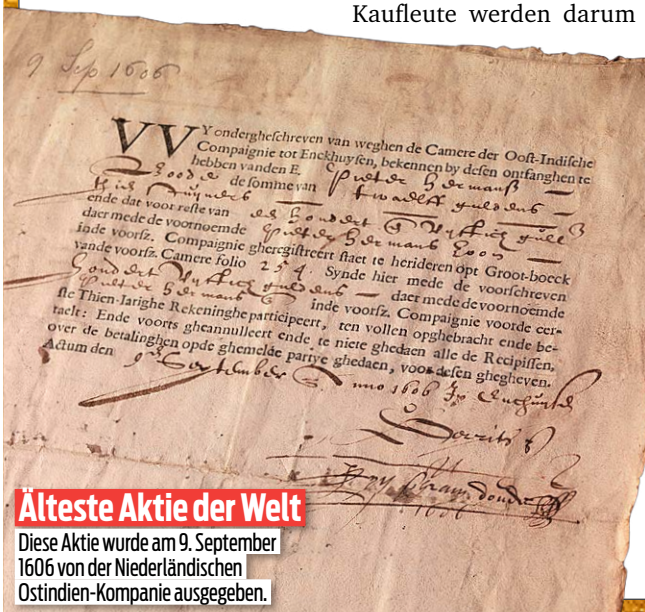 Kaufleute werden darum
9 Sep 1606
VVY ondergheschreven van weghen de Camere der Oost-Indische
Compaignie tot Enckhuysen, bekennen by desen ontfanghen te
hebben vanden E. Pieter Hermansz
de somme van twaelff guldens
ende dat voor reste van hondert
daer mede de voornoemde Pieter Hermans
inde voorsz. Compaignie gheregistreert staet te herideren opt Groot-boeck
vande voorsz. Camere folio 254. Synde hier mede de voorschreven
hondert guldens daer mede de voornoemde
Pieter Hermans inde voorsz. Compaignie voorde eer-
ste Thien-Iarighe Rekeninghe participeert, ten vollen opghebracht ende be-
taelt: Ende voorts gheannulleert ende te niete ghedaen alle de Recipissen,
over de betalinghen opde ghemelde partye ghedaen, voor desen ghegheven.
Actum den 9 September Anno 1606
1606
Älteste Aktie der Welt
Diese Aktie wurde am 9. September
1606 von der Niederländischen
Ostindien-Kompanie ausgegeben.